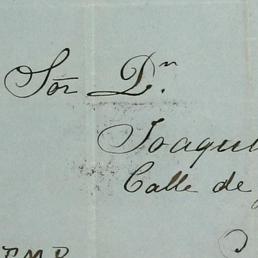 Sor Dn.
Joaqu
Calle de